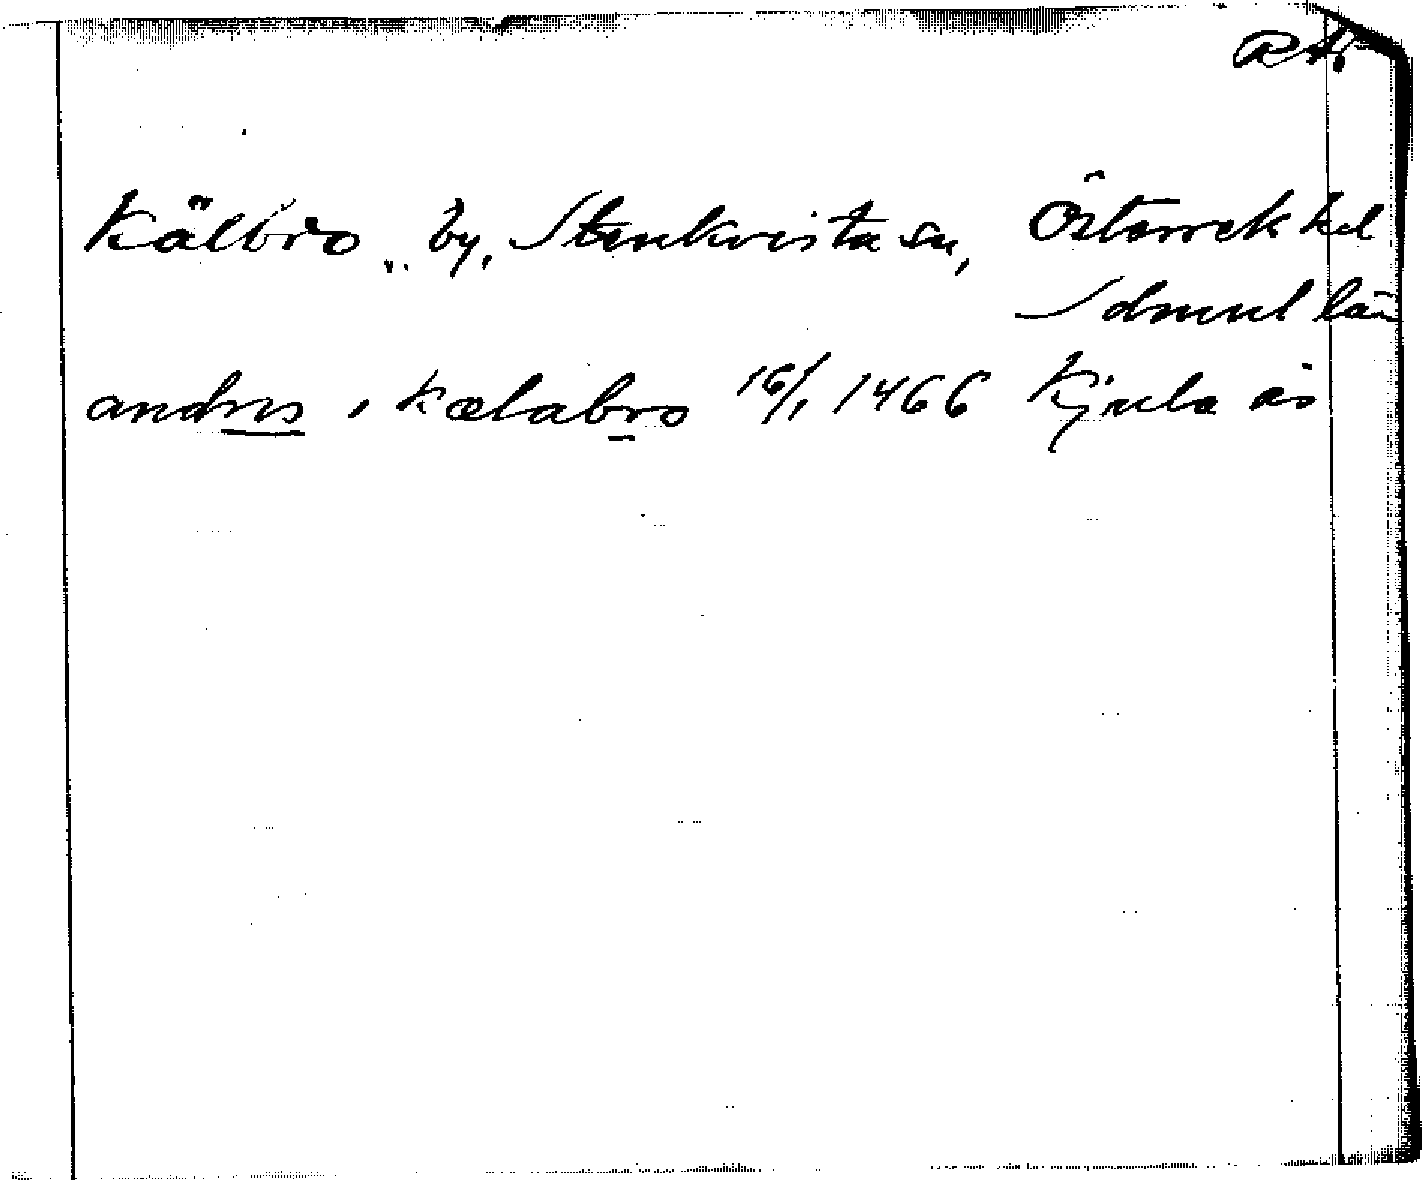 RA.
Kälbro, by, Stenkvista sn, Österrek hd
Södmnl län
andrɛs i kælabro 16/1 1466 Kjula ås